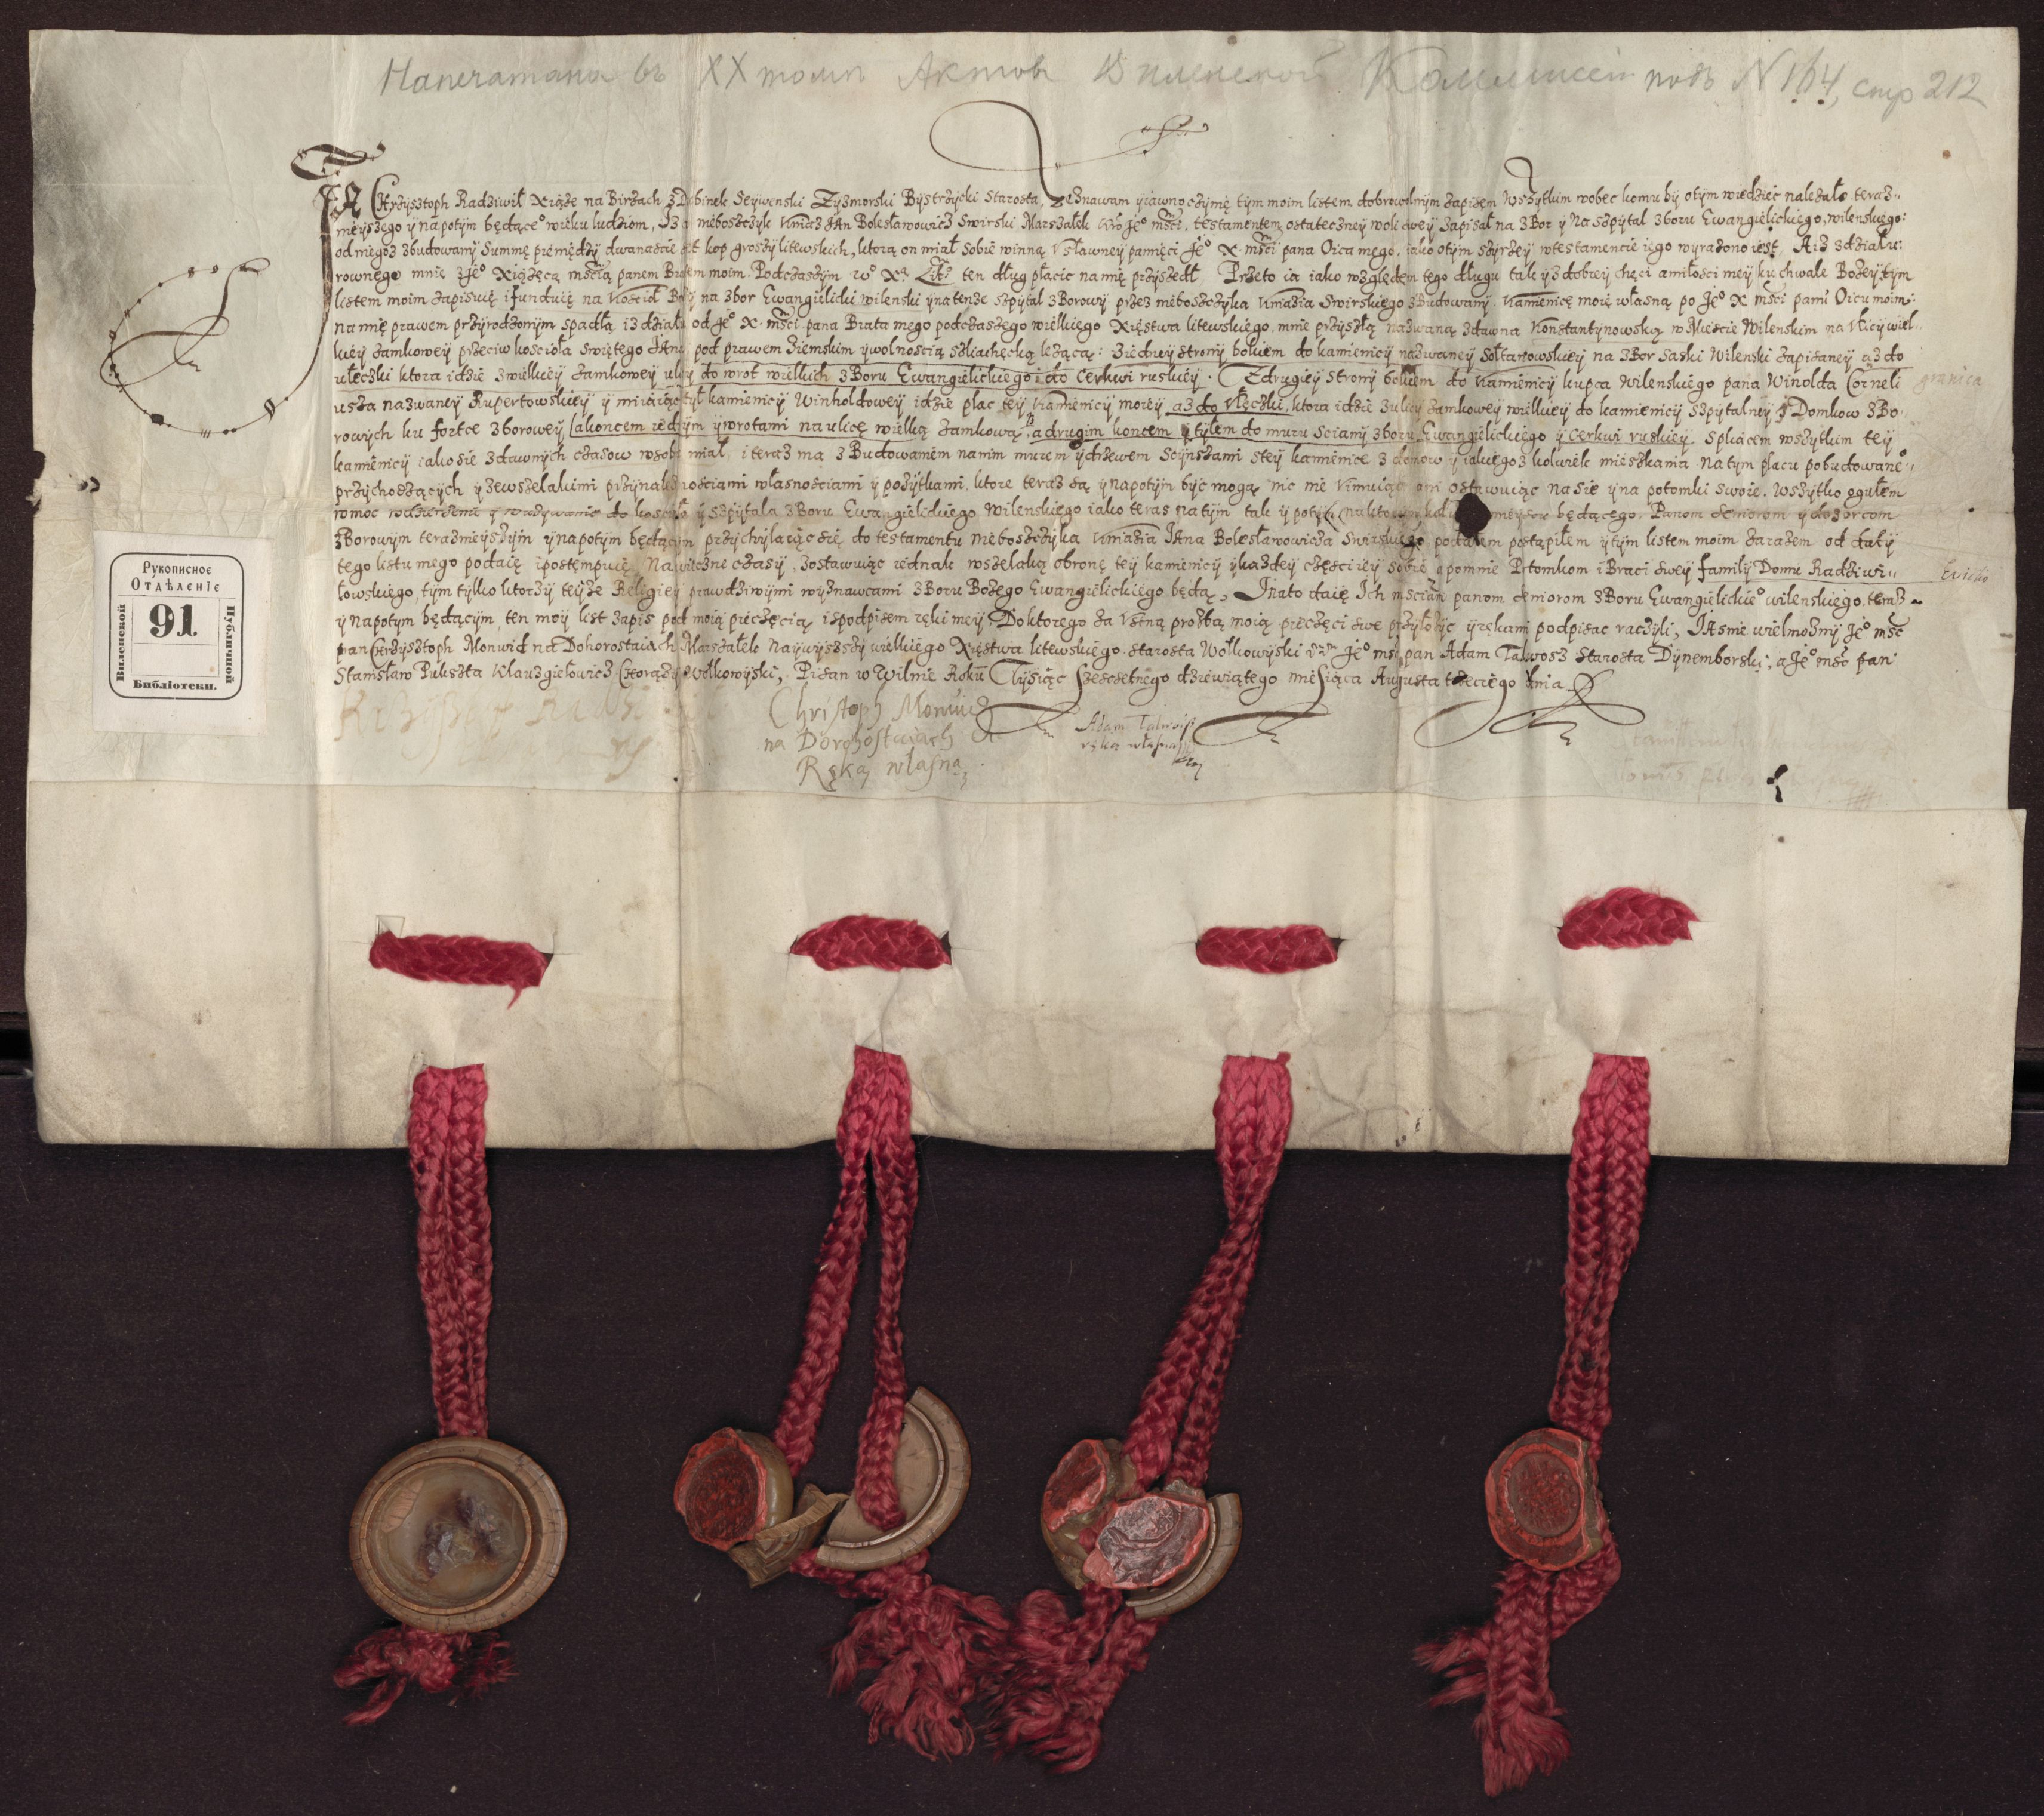 Напечатана въ XX томѣ Актов Виленской Коммисеи подъ N 164, стр 212
JA Chrżysztoph Radziwił Xiąże na Birżach z Dubinek Seywenski Żyżmorski Bystrżycki Starosta, Zeznawam y iawno czynię tym moim listem dobrowolnym zapisem Wszytkim wobec komu by otym wiedzieć należało teraz-
nieyszego y napotym będące° wieku ludziom, Iż nieboszczyk Kniaź Jan Bolesławowicz Swirski Marszałek Je° Mści, testamentem ostateczney woli swey zapisał na zbor y na szpytal zboru Ewangielickiego, wilenskiego:
od niegoż zbudowany Summę pieniędzy dwanascie set kop groszy litewskich, ktorą on miał sobie winną u sławney pamięci Je° X. Mści pana Oica mego, iako otym szyrzey w testamencie iego wyrażono iest. A iż z działu:
rownego mnie z Je° Xiążęcą Mścią panem Bratem moim Podczaszym ten dług płacic na mię przyszedł Przeto ia iako względem tego długu tak y z dobrey chęci a miłosci mey ku chwale Bożey tym
listem moim zapisuię i funduię na Kościoł Boży na zbor Ewangielicki wilenski y na tenże szpytal zborowy przez nieboszczyka Kniazia Swirskiego zbudowany. Kamienicę moię własną po Je° X Mści panu Oicu moim:
na mię prawem przyrodzonym spadłą i z działu od Je° X. Mści pana Brata mego podczaszego wielkiego Xięstwa litewskiego, mnie przyszłą nazwaną zdawna Konstantynowską w Mieście Wilenskim na Vlicy wiel-
kiey zamkowey przeciw koscioła swiętego Jana pod prawem ziemskim y wolnoscią szliachecką leżącą: Ziedney strony bokiem do kamienicy nazwaney sołtanowskiey na zbor Saski Wilenski zapisaney aż do
uleczki ktora idzie z wielkiey zamkowey ulicy do wrot wielkich zboru Ewangielickiego i do Cerkwi ruskiey. Z drugiey strony bokiem do kamienicy kupca Wilenskiego pana Winolda Corneli granica
usza nazwaney Rupertowskiey y miiaiąc tył kamienicy Winholdowey idzie plac tey kamienicy moiey aż do Vleczki, ktora idzie z ulicy zamkowey wielkiey do kamienicy szpytalney y Domkow zbo-
rowych ku fortce zborowey, a koncem iednym y wrotami na ulicę wielką zamkową, a drugim koncem y tyłem do muru sciany zboru Ewangielickiego y Cerkwi ruskiey. S placem wszytkim tey
kamienicy iako sie z dawnych czasow w sobie miał, i teraz ma z Budowaniem na nim murem y drzewem S czynszami s tey kamienice z domow y iakiegoż kolwiek mieszkania na tym placu pobudowane°
przychodzących y ze wszelakimi przynależnosciami własnosciami y pożytkami, ktore teraz są y napotym być mogą nic nie vimuiąc ani ostawuiąc na sie y na potomki swoie. Wszytko ogułem
w moc do koscioła y szpytala zboru Ewangielickiego Wilenskiego iako teras na tym tak y potym na ktorym będącego, Panom Seniorom y dozorcom
zborowym teraznieyszym y napotym będącym przychylaiąc się do testamentu nieboszczyka Kniazia Jana Bolesławowicza Swirskiego podałem postąpiłem y tym listem moim zarazem od daty
tego listu mego podaię i postępuię, Na wieczne czasy, zostawuiąc iednak wszelaką obronę tey kamienicy y każdey częsci iey sobie a po mnie Potomkom i Braci swey familij Domu Radziwi-
łowskiego, tym tylko ktorzy teyże Religiey prawdziwymi wyznawcami zboru Bożego Ewangielickiego będą, I na to daię Ich Mściam panom Seniorom zboru Ewangielickie° wilenskiego teraz-
y napotym będącym, ten moy list zapis pod moią pieczęcią i s podpisem ręki mey Do ktorego za vstną prosbą moią pieczęci swe przyłożyć y rękami podpisac raczyli, JAsnie wielmożny Je° Mść
pan Chrzysztoph Monwid na Dohorostaiach Marszałek Naywyższy wielkiego Xięstwa litewskiego, starosta Wołkowyski Je° Mść pan Adam Talwosz Starosta Dynemborski, a Je° Mść pan
Stanisław Pukszta Klauzgiełowicz Chorąży Wołkowyski, Pisan w Wilnie Roku Tysiąc Szescsetnego dziewiątego miesiąca Augusta trzeciego dnia
Christoph Moniwid
na Dorohostaiach
Ręką własną
Adam Talwosz
ręką własną
Рукописное
Отдѣленіе
91
Виленской
Публичной
Библіотеки.